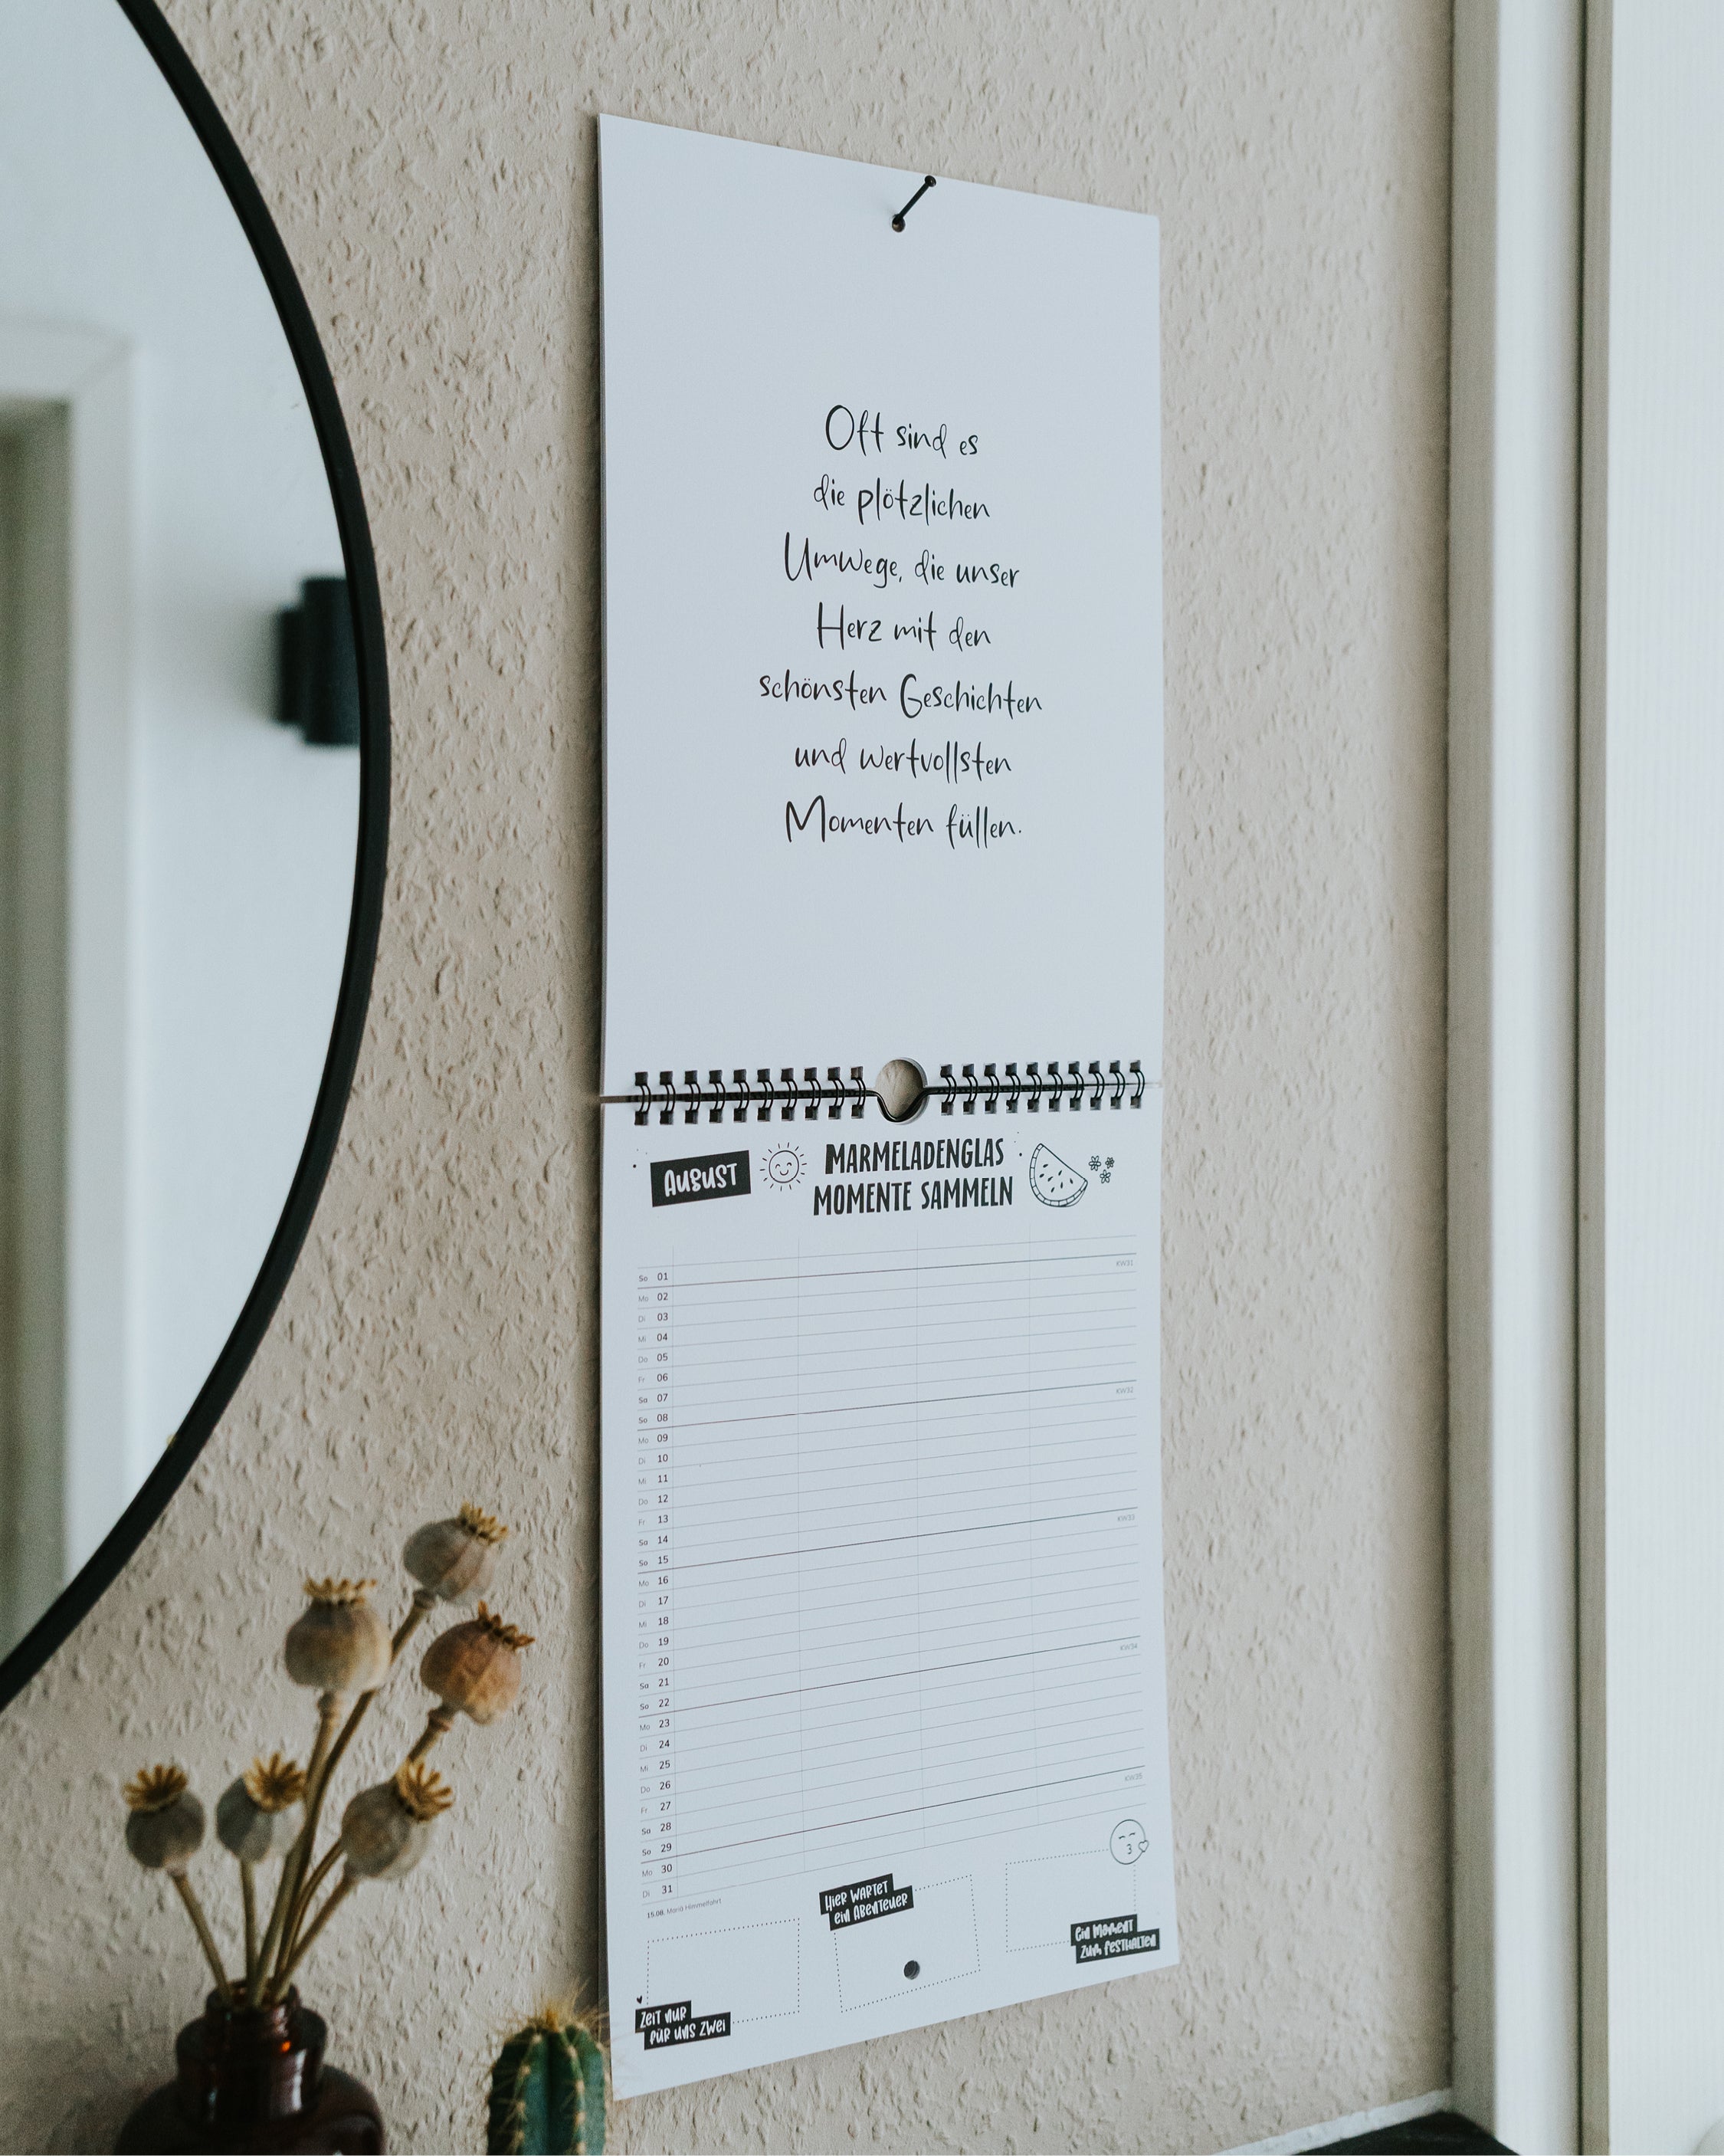 Oft sind es
die plötzlichen
Umwege, die unser
Herz mit den
schönsten Geschichten
und wertvollsten
Momenten füllen.
AUGUST
MARMELADENGLAS
MOMENTE SAMMELN
So 01 KW31
Mo 02
Di 03
Mi 04
Do 05
Fr 06
Sa 07
So 08 KW32
Mo 09
Di 10
Mi 11
Do 12
Fr 13
Sa 14
So 15 KW33
Mo 16
Di 17
Mi 18
Do 19
Fr 20
Sa 21
So 22 KW34
Mo 23
Di 24
Mi 25
Do 26
Fr 27
Sa 28
So 29 KW35
Mo 30
Di 31
15.08. Mariä Himmelfahrt
HIER WARTET
EIN ABENTEUER
EIN MOMENT
ZUM FESTHALTEN
ZEIT NUR
FÜR UNS ZWEI